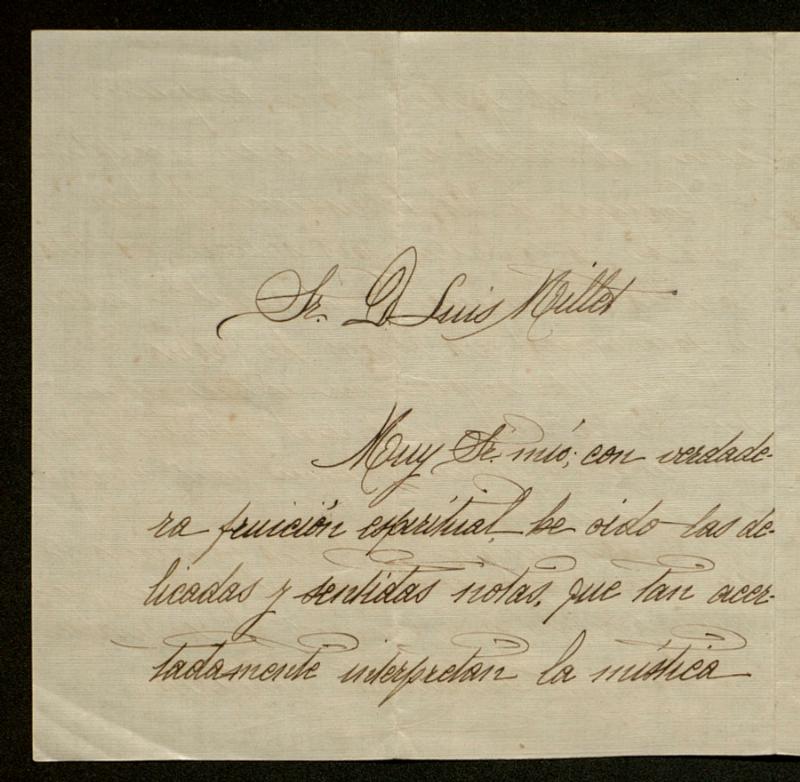 Sr. D. Luis Millet
Muy Sr. mío; con verdade-
ra fruición espiritual he oido las de-
licadas y sentidas notas, que tan acer-
tadamente interpretan la mística